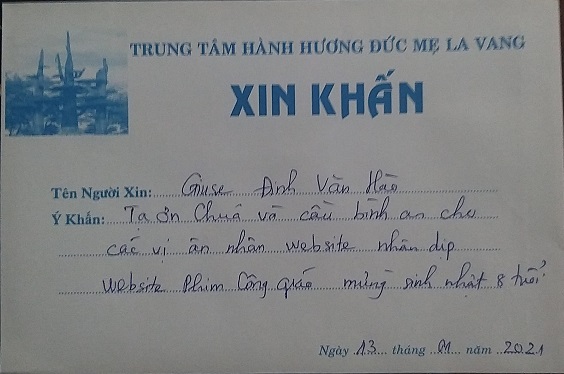 TRUNG TÂM HÀNH HƯƠNG ĐỨC MẸ LA VANG
XIN KHẤN
Tên Người Xin: Giuse Anh Văn Hào
Ý Khấn: Tạ ơn Chúa và cầu bình an cho
các vị ân nhân website nhân dịp
website Phim Công giáo mừng sinh nhật 8 tuổi.
Ngày 13 tháng 01 năm 2021